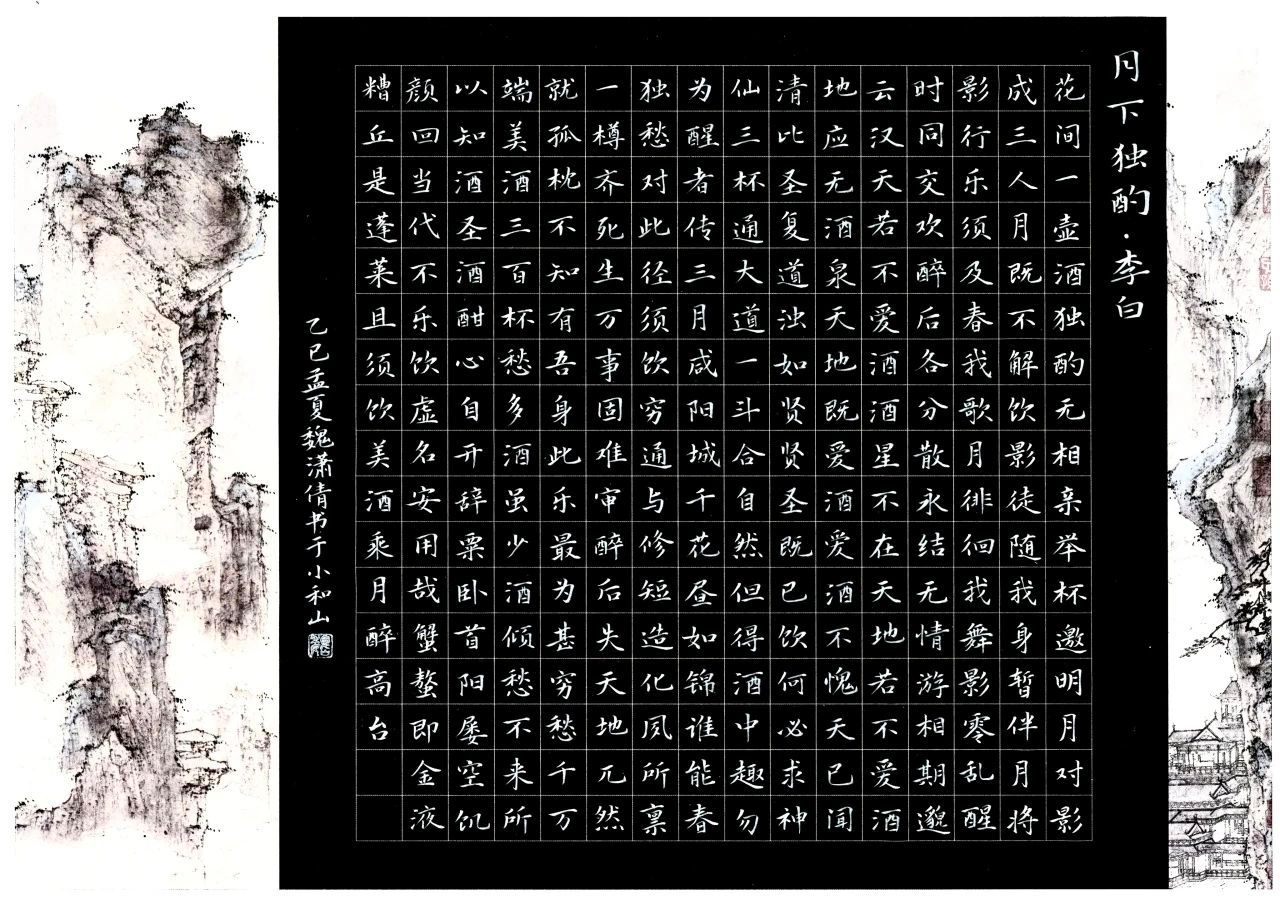 月下独酌·李白
花间一壶酒独酌无相亲举杯邀明月对影
成三人月既不解饮影徒随我身暂伴月将
影行乐须及春我歌月徘徊我舞影零乱醒
时同交欢醉后各分散永结无情游相期邈
云汉天若不爱酒酒星不在天地若不爱酒
地应无酒泉天地既爱酒爱酒不愧天已闻
清比圣复道浊如贤贤圣既已饮何必求神
仙三杯通大道一斗合自然但得酒中趣勿
为醒者传三月咸阳城千花昼如锦谁能春
独愁对此径须饮穷通与修短造化夙所禀
一樽齐死生万事固难审醉后失天地兀然
就孤枕不知有吾身此乐最为甚穷愁千万
端美酒三百杯愁多酒虽少酒倾愁不来所
以知酒圣酒酣心自开辞粟卧首阳屡空饥
颜回当代不乐饮虚名安用哉蟹螯即金液
糟丘是蓬莱且须饮美酒乘月醉高台
乙巳孟夏魏潇倩书于小和山